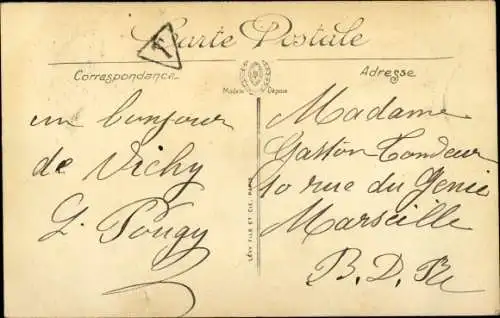 Carte Postale
T
Correspondance
Adresse
Modèle Déposé
un bonjour
de Vichy
L. Pougy
LÉVY FILS ET CIE, PARIS
Madame
Gaston Tondeur
10 rue du Génie
Marseille
B. D. Rh